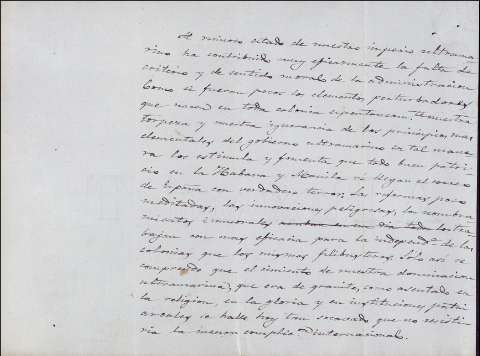 Al ruinoso estado de nuestro imperio ultrama
rino ha contribuido muy eficazmente la falta de
criterio y de sentido moral de la administracion
Como si fueran pocos los elementos perturbadores
que nacen en toda colonia espontaneam.te nuestra
torpeza y nuestra ignorancia de los principios mas
elementales del gobierno ultramarino en tal mane
ra los estimula y fomenta que todo buen patri
cio en la Habana y Manila ve llegar el correo
de España con verdadero terror; las reformas poco
meditadas, las innovaciones peligrosas, los nombra
mientos inmorales
bajan con mas eficacia para la independ.a de las
colonias que los mismos filibusteros. Solo asi se
comprende que el cimiento de nuestra dominacion
ultramarina, que era de granito, como asentado en
la religion, en la gloria y en instituciones patri
arcales se halle hoy tan socavado que no resisti
ria la menor complic.n internacional.